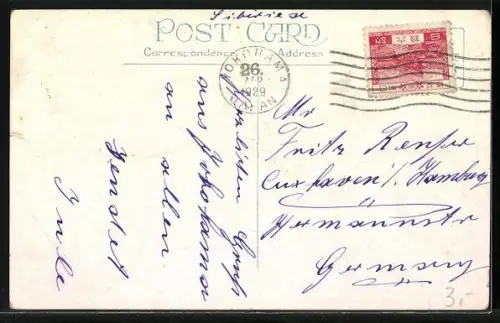 Sibiriese
POST CARD
Correspondence
Address
YOKOHAMA
26.
1929
JAPAN
Herzlichen Gruß
aus Jokohama
an allen
Jenstet
Inle
Mr
Fritz Renser
Cuxhaven / Hamburg
Hermannstr
Germany
3.-